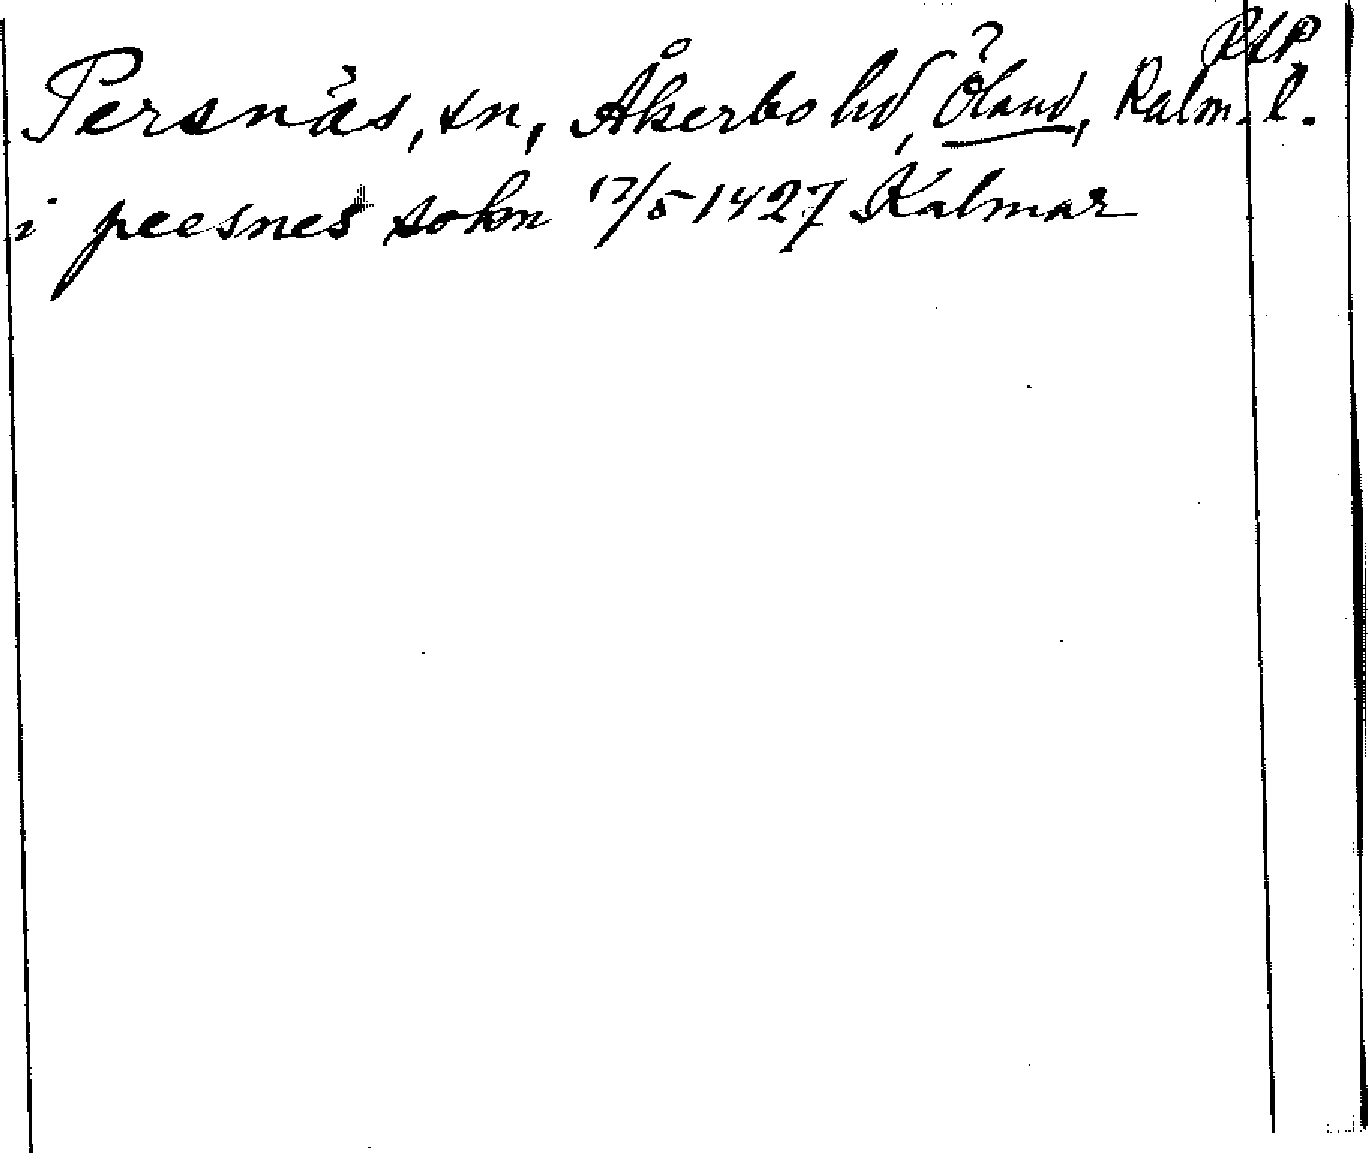 RAP
Persnäs, sn, Åkerbo hd, Öland, Kalm. l.
i peesnes sokn 17/5 1427 Kalmar